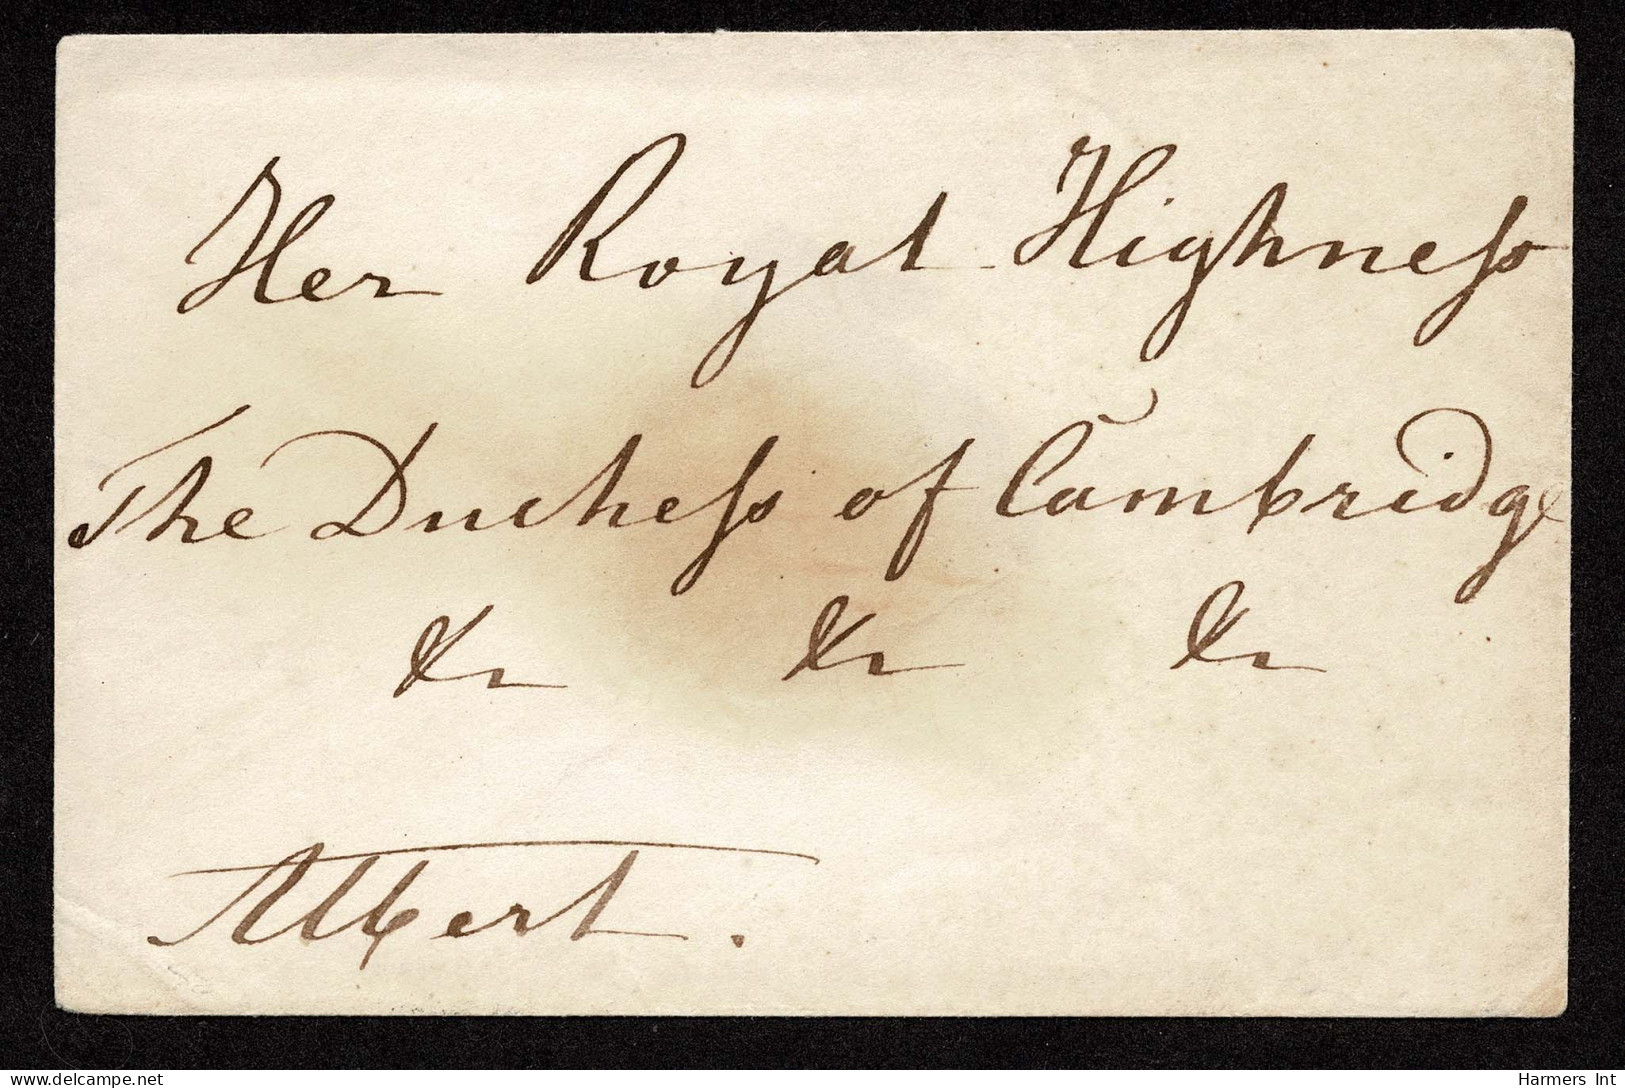 Her Royal Highness
The Duchess of Cambridge
&c &c &c
Albert.
delcampe.net
Harmers Int